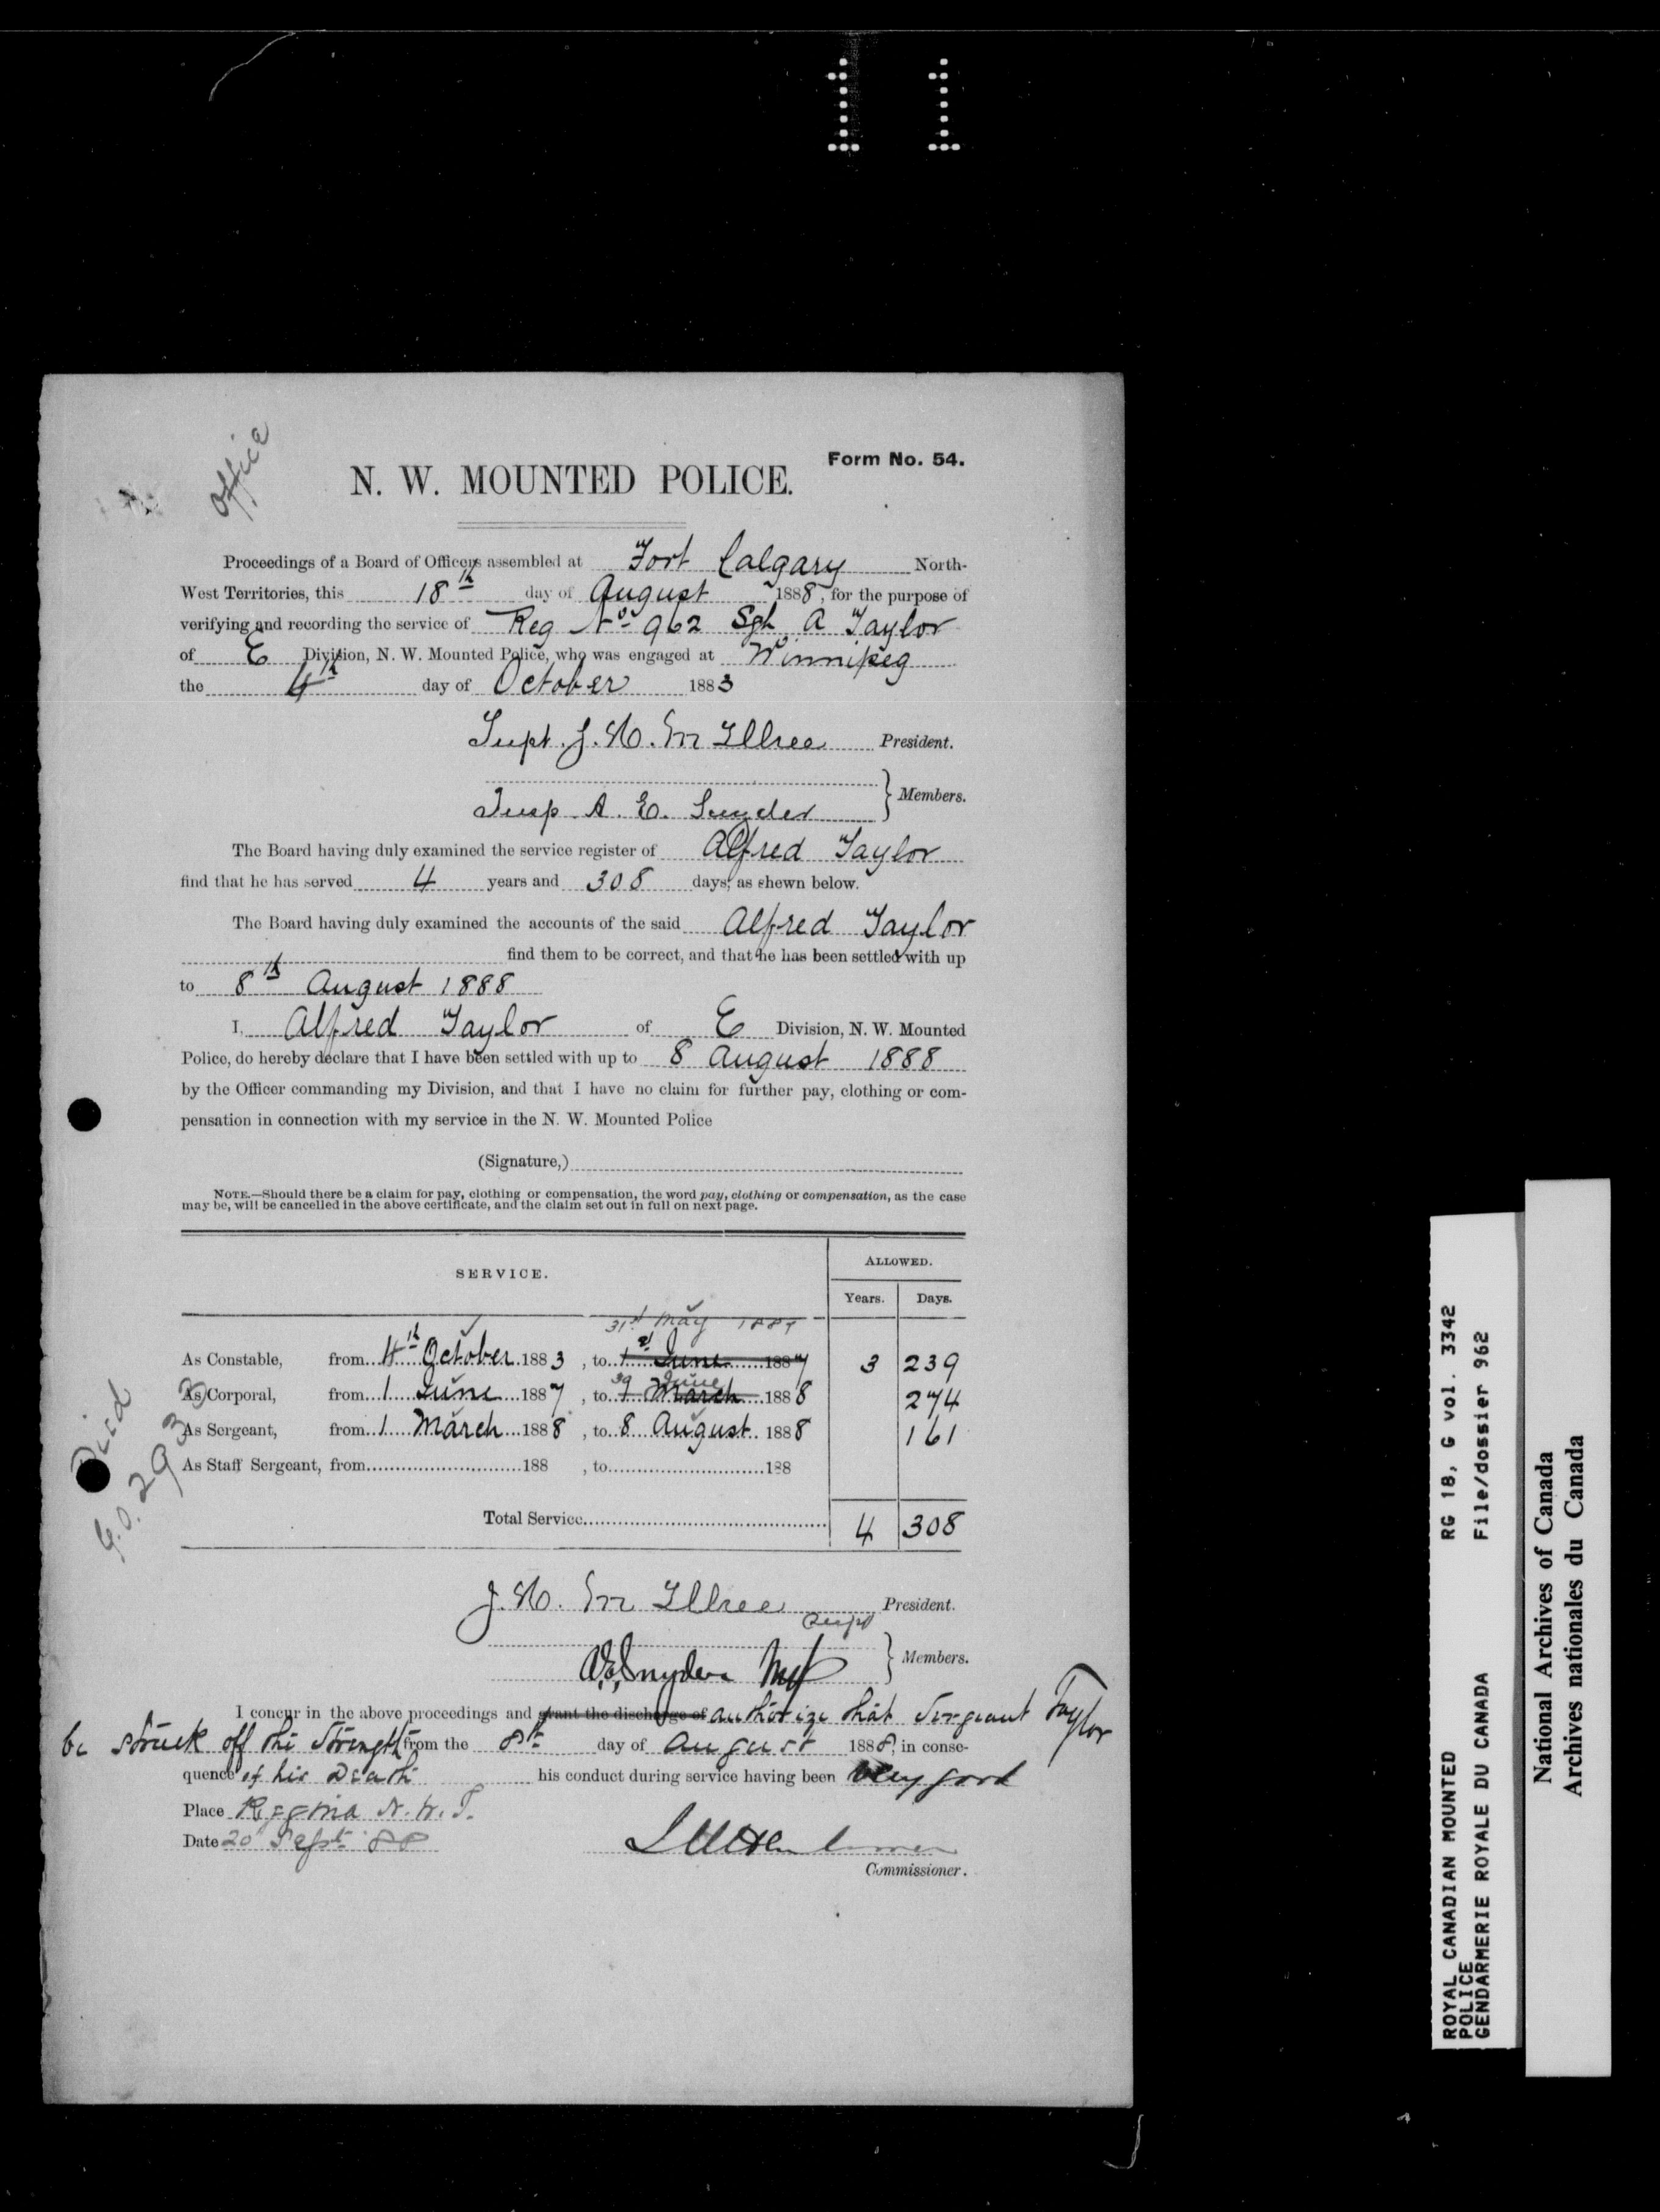 11
Office
Form No. 54.
N. W. MOUNTED POLICE.
Proceedings of a Board of Officers assembled at Fort Calgary North-
West Territories, this 18th day of August 1888, for the purpose of
verifying and recording the service of Reg No 962 Sgt A Taylor
of E Division, N. W. Mounted Police, who was engaged at Winnipeg
the 4th day of October 1883
Supt. J. H. McIllree President.
Insp A. E. Snyder } Members.
The Board having duly examined the service register of Alfred Taylor
find that he has served 4 years and 308 days, as shewn below.
The Board having duly examined the accounts of the said Alfred Taylor
find them to be correct, and that he has been settled with up
to 8th August 1888
I, Alfred Taylor of E Division, N. W. Mounted
Police, do hereby declare that I have been settled with up to 8 August 1888
by the Officer commanding my Division, and that I have no claim for further pay, clothing or com-
pensation in connection with my service in the N. W. Mounted Police
(Signature,)
NOTE.—Should there be a claim for pay, clothing or compensation, the word pay, clothing or compensation, as the case
may be, will be cancelled in the above certificate, and the claim set out in full on next page.
SERVICE. ALLOWED.
Years. Days.
31st May 1887
As Constable, from 4th October 1883, to 1st June 1887 3 239
As Corporal, from 1 June 1887, to March 1888 274
As Sergeant, from 1 March 1888, to 8 August 1888 161
As Staff Sergeant, from 188 , to 188
Total Service 4 308
Died
G.O. 2933
J. H. McIllree Supt President.
A. E. Snyder Insp } Members.
I concur in the above proceedings and grant the discharge of authorize that Sergeant Taylor
be struck off the Strength from the 8th day of August 1888, in conse-
quence of his Death his conduct during service having been Very good
Place Regina N. W. T.
Date 20 Sept 88
Commissioner.
ROYAL CANADIAN MOUNTED RG 18, G vol. 3342
POLICE
GENDARMERIE ROYALE DU CANADA File/dossier 962
National Archives of Canada
Archives nationales du Canada